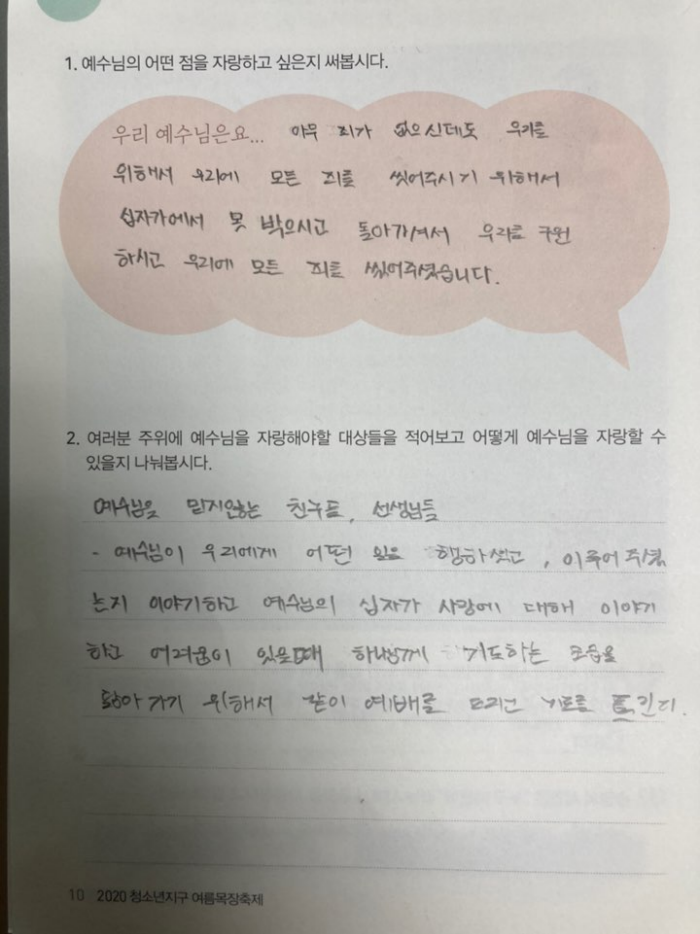 1. 예수님의 어떤 점을 자랑하고 싶은지 써봅시다.
우리 예수님은요... 아무 죄가 없으신데도 우리를
위해서 우리에 모든 죄를 씻어주시기 위해서
십자가에서 못 박으시고 돌아가셔서 우리를 구원
하시고 우리에 모든 죄를 씻어주셨습니다.
2. 여러분 주위에 예수님을 자랑해야할 대상들을 적어보고 어떻게 예수님을 자랑할 수
있을지 나눠봅시다.
예수님을 믿지않는 친구들, 선생님들
- 예수님이 우리에게 어떤 일을 행하셨고, 이루어 주셨
는지 이야기하고 예수님의 십자가 사랑에 대해 이야기
하고 어려움이 있을때 하나님께 기도하는 모습을
닮아가기 위해서 같이 예배를 드리고 기도를
10 2020 청소년지구 여름목장축제